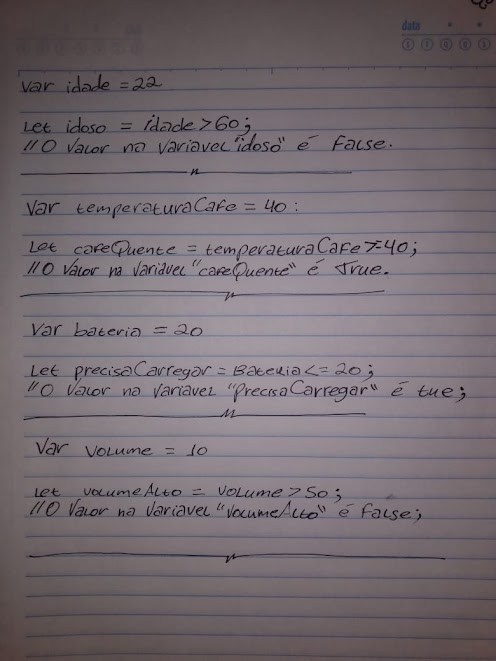 data
Var idade = 22
Let idoso = idade > 60;
// O Valor na Variavel "idoso" é False.
Var temperaturaCafe = 40:
Let cafeQuente = temperaturaCafe >= 40;
// O Valor na Variavel "cafeQuente" é True.
Var bateria = 20
Let precisaCarregar = Bateria <= 20;
// O Valor na Variavel "PrecisaCarregar" é tue;
Var Volume = 10
Let volumeAlto = Volume > 50;
// O Valor na Variavel "VolumeAlto" é False;